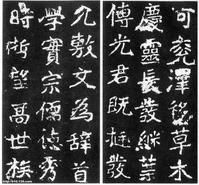 可澤後草木
慶靈長發継葉
傳光君既挺發
文為辭首
學實宗儒德秀
時望高世族